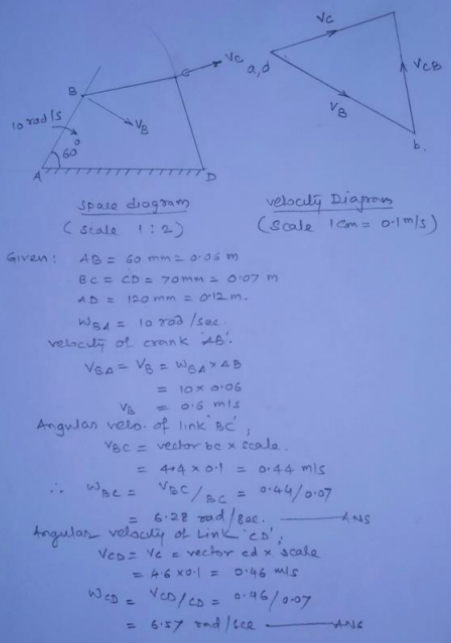 VC
VC
B
a,d
VCB
VB
VB
10 rad/s
60°
b.
A
D
space diagram
velocity Diagram
( scale 1 : 2 )
(scale 1cm = 0.1m/s)
Given: AB = 60 mm = 0.06 m
BC = CD = 70mm = 0.07 m
AD = 120 mm = 0.12 m.
WBA = 10 rad/sec.
velocity of crank 'AB':
VBA = VB = WBA × AB
= 10 × 0.06
VB = 0.6 m/s
Angular velo. of link 'BC',
VBC = vector bc × scale.
= 4.4 × 0.1 = 0.44 m/s
∴ WBC = VBC/BC = 0.44/0.07
= 6.28 rad/sec. ——— ANS
Angular velocity of Link 'CD',
VCD = VC = vector cd × scale
= 4.6 × 0.1 = 0.46 m/s
WCD = VCD/CD = 0.46/0.07
= 6.57 rad/sec ——— ANS